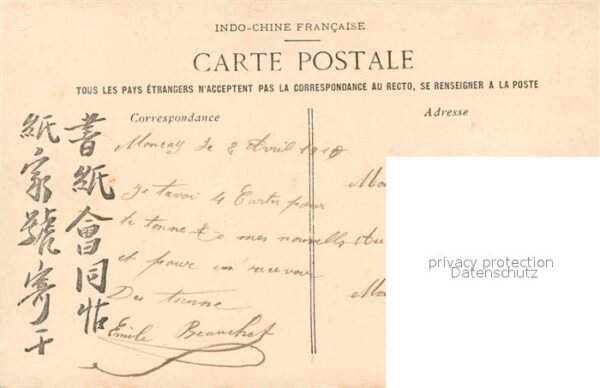 INDO-CHINE FRANÇAISE
CARTE POSTALE
TOUS LES PAYS ÉTRANGERS N'ACCEPTENT PAS LA CORRESPONDANCE AU RECTO, SE RENSEIGNER A LA POSTE
Correspondance
Adresse
書紙會同帖
紙家號寄
Moncay le 2 Avril 1910
je tavoi 4 Cartes pour
te donne de mes nouvelles
et pour en recevoir
Des tienne
Emile Beauchet
Mo
Au
Mo
privacy protection
Datenschutz